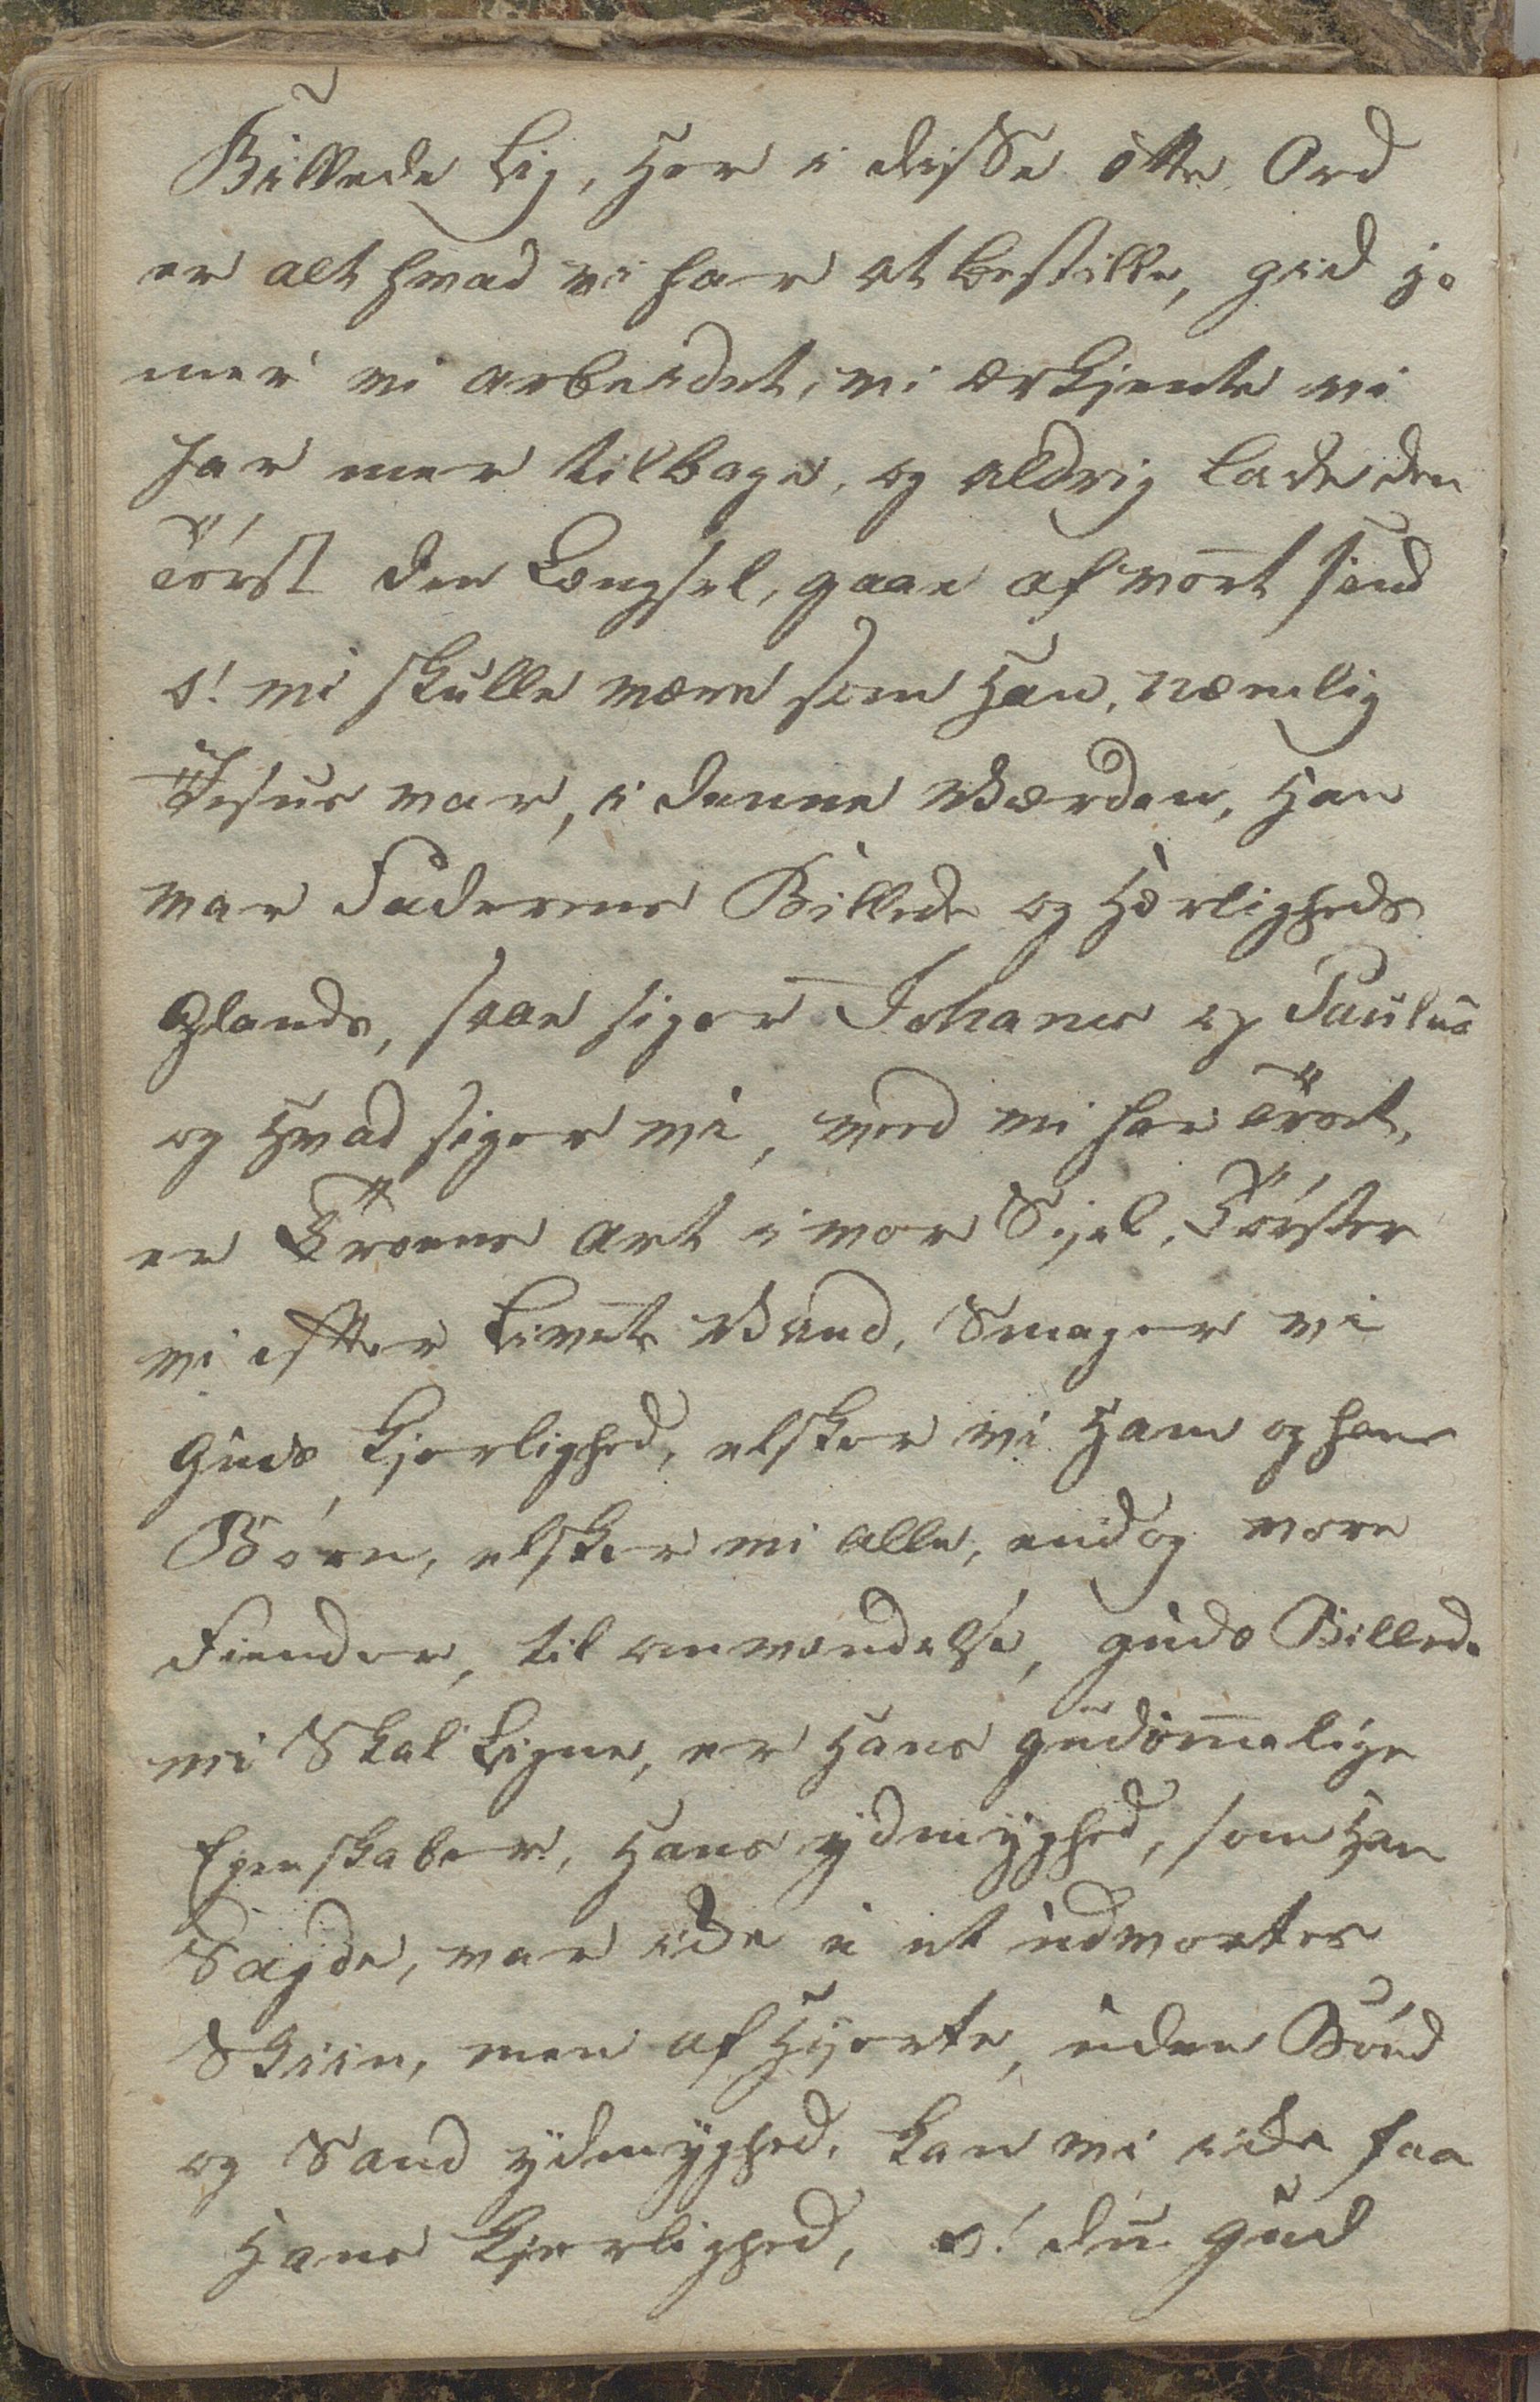 Billede lig, Her i disse otte Ord
er alt hvad vi har at bestille, gid jo
mer vi arbeidet, vi erkjente vi
har mer tilbage, og aldrig lade den
Törst den Længsel, gaae af vort sind
o! vi skulle være som Han, nemlig
Jesus var, i denne Verden, Han
var Faderens Billede og Herligheds
Glands, saae siger Johanes og Paulus
og Hvad siger vi, ved vi har Troet,
er Troens art i vor Sjel, Törster
vi efter Livets Vand, Smager vi
Guds Kjerlighed, elsker vi Ham og hans
Børn, elsker vi alle, endog vore
Fiender, til omvendelse, guds Billede
vi Skal Ligne, er Hans gudommelige
Egenskaber, Hans ydmyghed, som Han
Sagde, var icke i et udvortes
Skiin, men af Hjerte, uden Bönd
og Sand ydmyghed, kan vi icke faa
Hans Kjerlighed, o! du gud